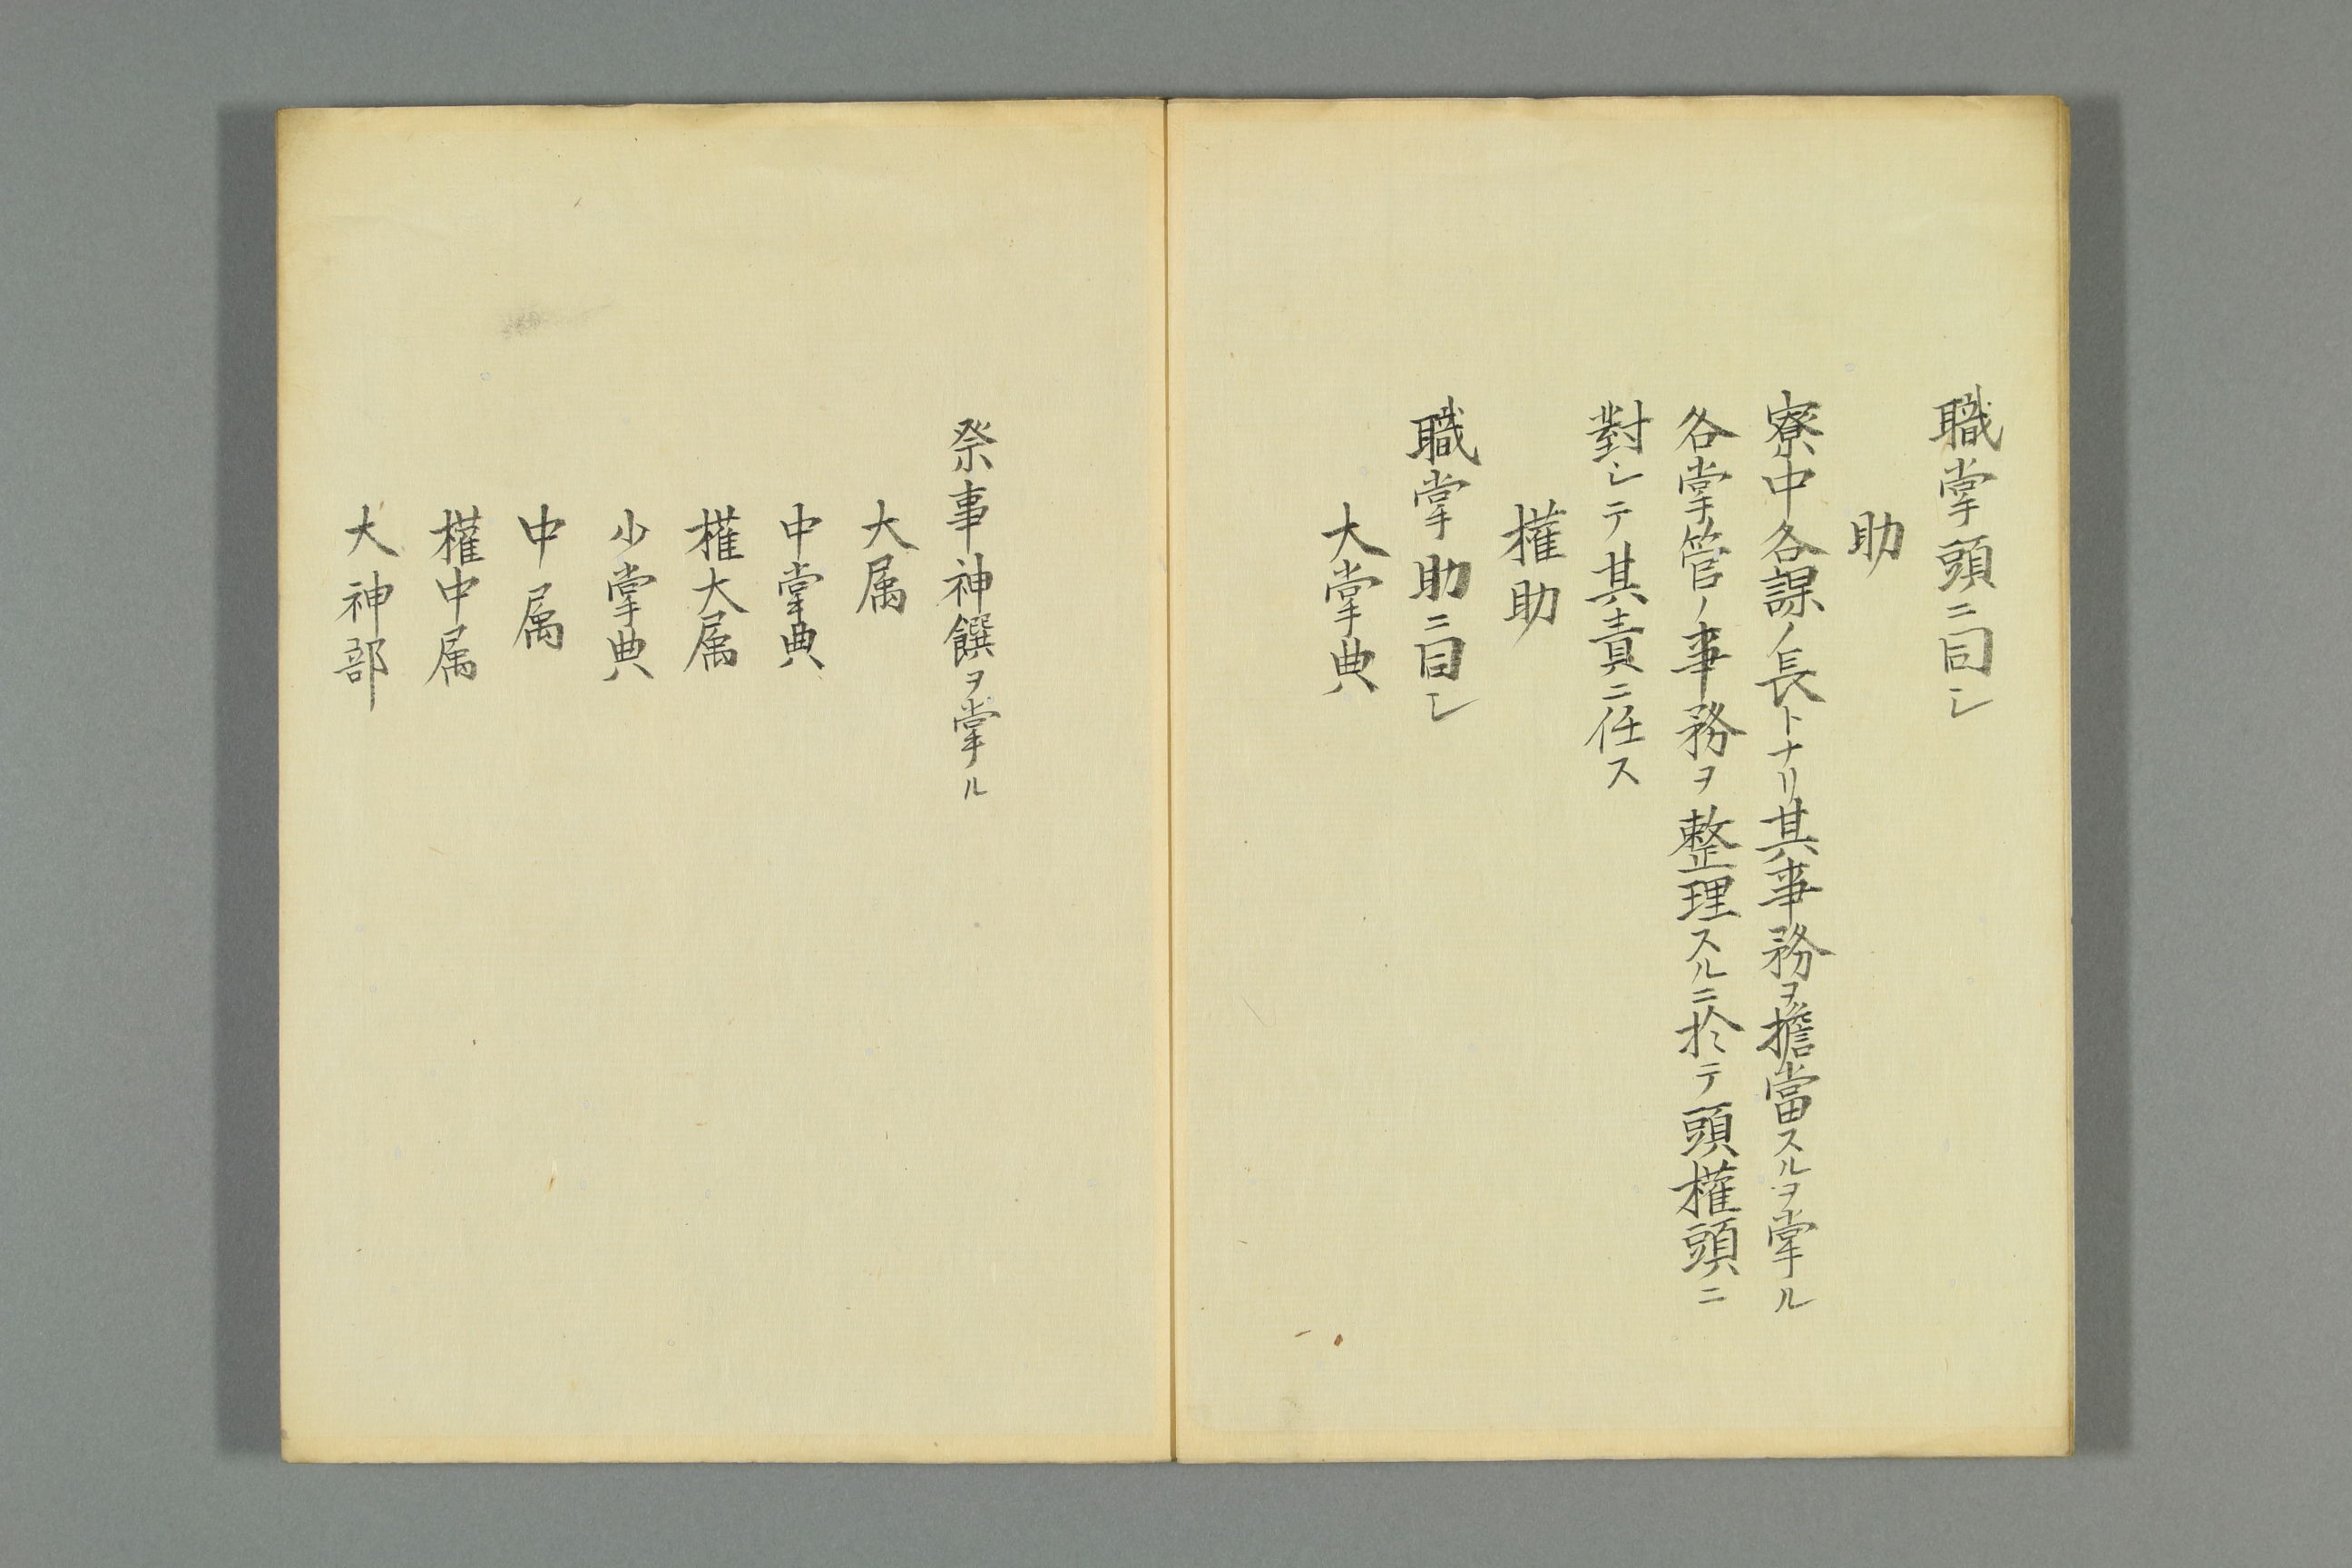 職掌頭ニ同シ
助
寮中各課ノ長トナリ其事務ヲ擔當スルヲ掌ル
各掌管ノ事務ヲ整理スルニ於テ頭權頭ニ
對シテ其責ニ任ス
權助
職掌助ニ同シ
大掌典
祭事神饌ヲ掌ル
大属
中掌典
權大属
少掌典
中属
權中属
大神部